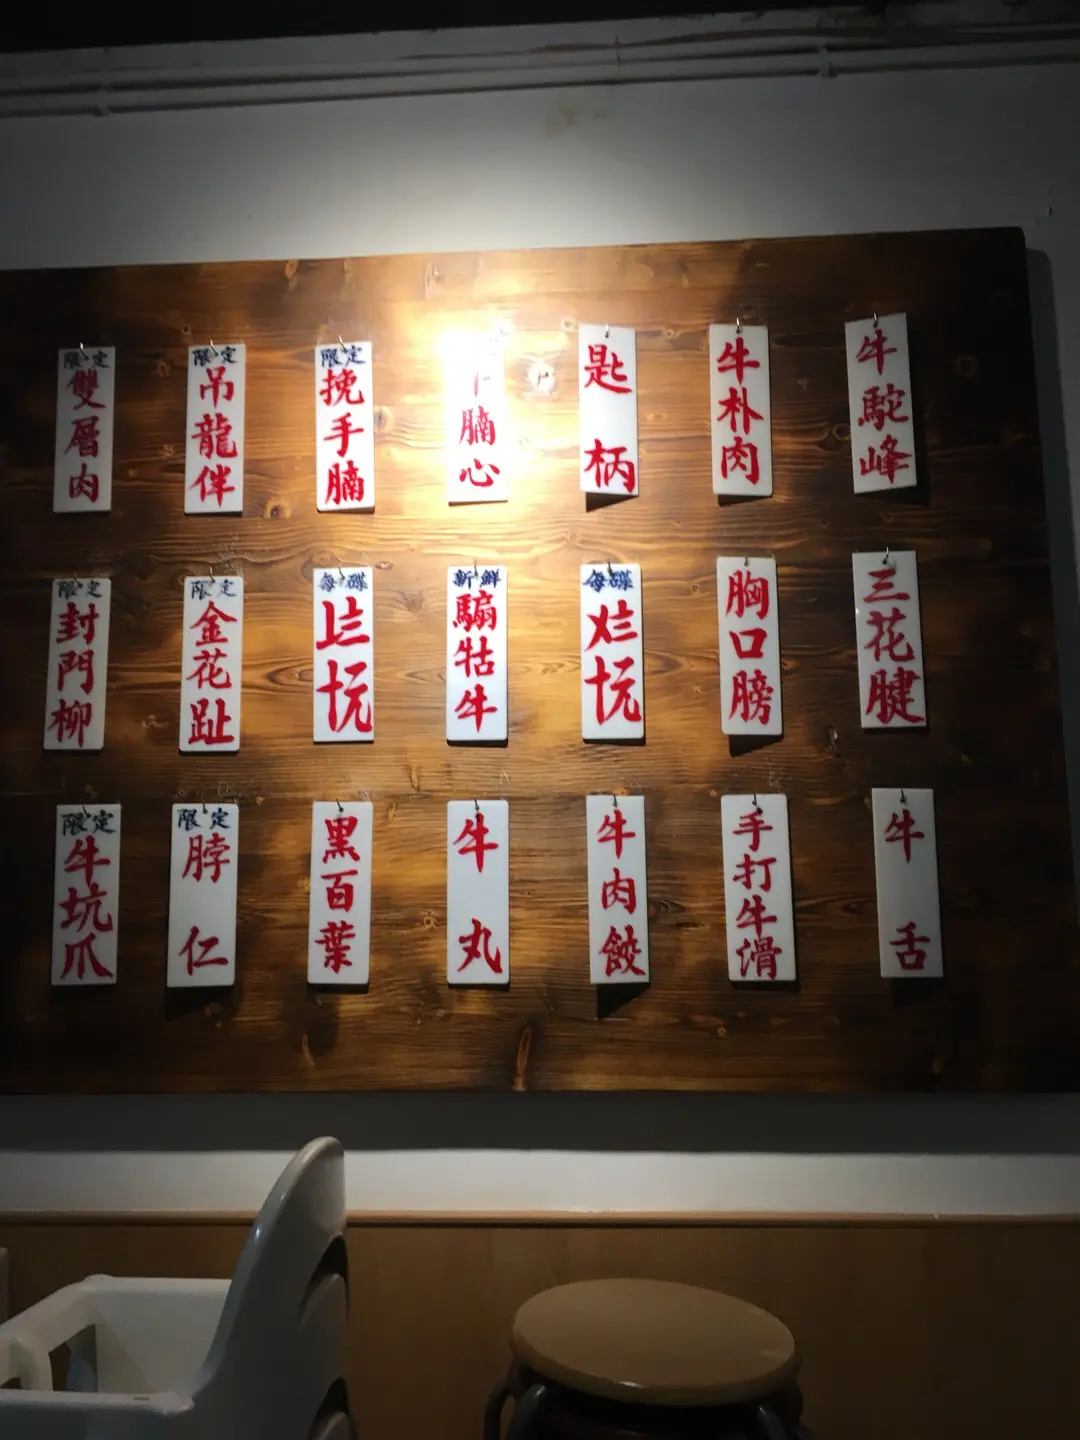 限定
雙層肉
限定
吊龍伴
限定
挽手腩
腩心
匙柄
牛朴肉
牛駝峰
限定
封門柳
限定
金花趾
每碟
〦三
十元
新鮮
騸牯牛
每碟
〤三
十元
胸口膀
三花腱
限定
牛坑爪
限定
脖仁
黑百葉
牛丸
牛肉餃
手打牛滑
牛舌